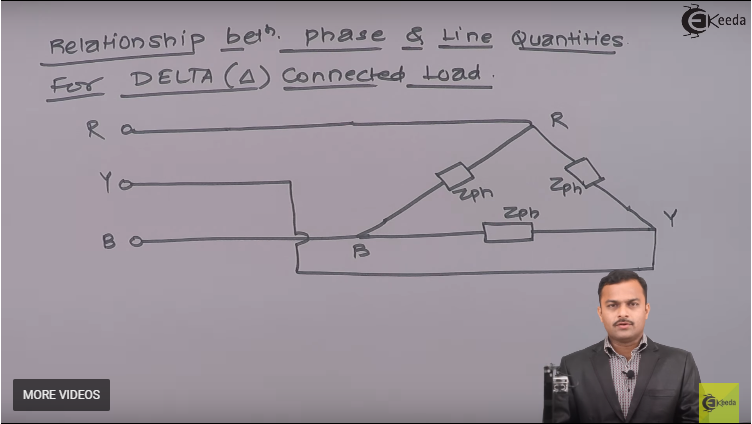 Relationship betn. phase & Line Quantities
For DELTA (Δ) Connected Load.
EKeeda
R
R
Y
Zph
Zph
Zph
Y
B
B
MORE VIDEOS
EKeeda